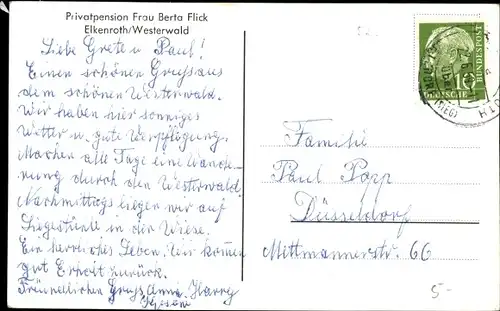 Privatpension Frau Berta Flick
Elkenroth/Westerwald
Liebe Grete u Paul!
Einen schönen Gruß aus
dem schönen Westerwald.
Wir haben hier sonniges
Wetter u. gute Verpflegung.
Machen alle Tage eine Wande-
rung durch den Westerwald.
Nachmittags liegen wir auf
Liegestühle in der Wiese.
Ein herrliches Leben. Wir kommen
gut Erholt zurück.
Freundlichen Gruß Anni, Harry
DEUTSCHE
BUNDESPOST
10
Familie
Paul Papp
Düsseldorf
Mittmannerstr. 66
5-